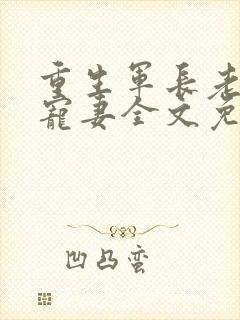 重生军长老
宠妻全文免
凹凸蛮